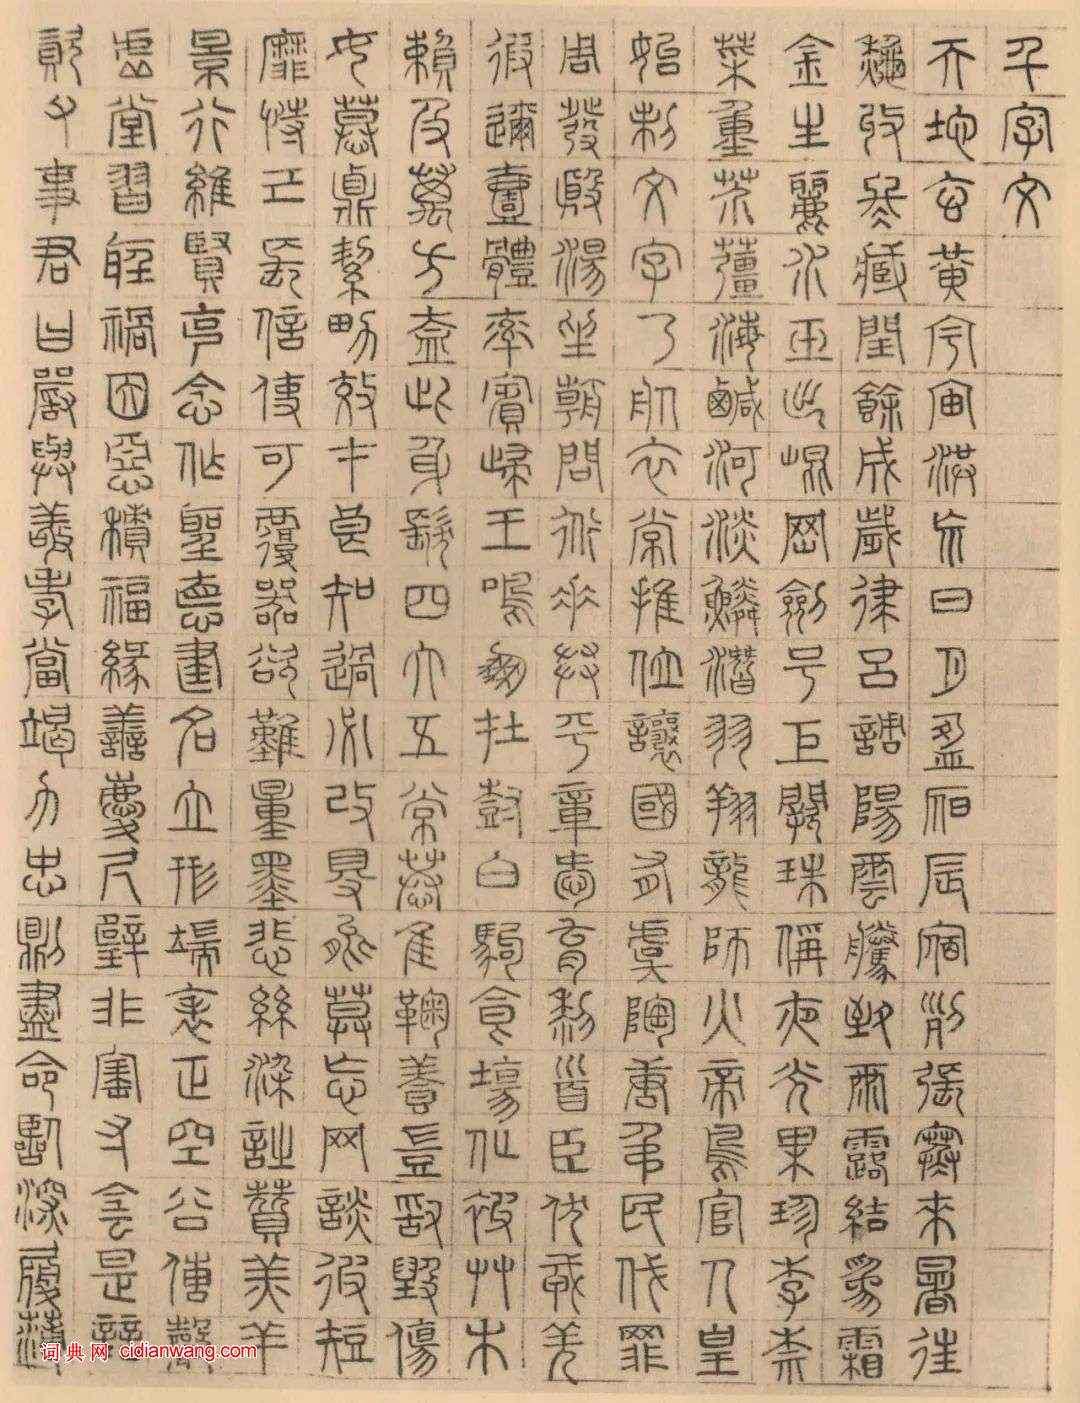 千字文
天地玄黃宇宙洪荒日月盈昃辰宿列張寒來暑往
秋收冬藏閏餘成歲律呂調陽雲騰致雨露結為霜
金生麗水玉出崐岡劍号巨闕珠稱夜光果珍李柰
菜重芥薑海鹹河淡鱗潛羽翔龍師火帝鳥官人皇
始制文字乃服衣常推位讓國有虞陶唐弔民伐罪
周發殷湯坐朝問道垂拱平章愛育黎首臣伏戎羌
遐邇壹體率賓歸王鳴鳳在樹白駒食場化被艸木
賴及萬方蓋此身髮四大五常恭惟鞠養豈敢毀傷
女慕貞絜男效才良知過必改得能莫忘罔談彼短
靡恃己長信使可覆器欲難量墨悲絲染詩贊羔羊
景行維賢克念作聖德建名立形端表正空谷傳聲
虛堂習聽禍因惡積福緣善慶尺璧非寶寸陰是競
資父事君曰嚴與敬孝當竭力忠則盡命臨深履薄
词典网 cidianwang.com